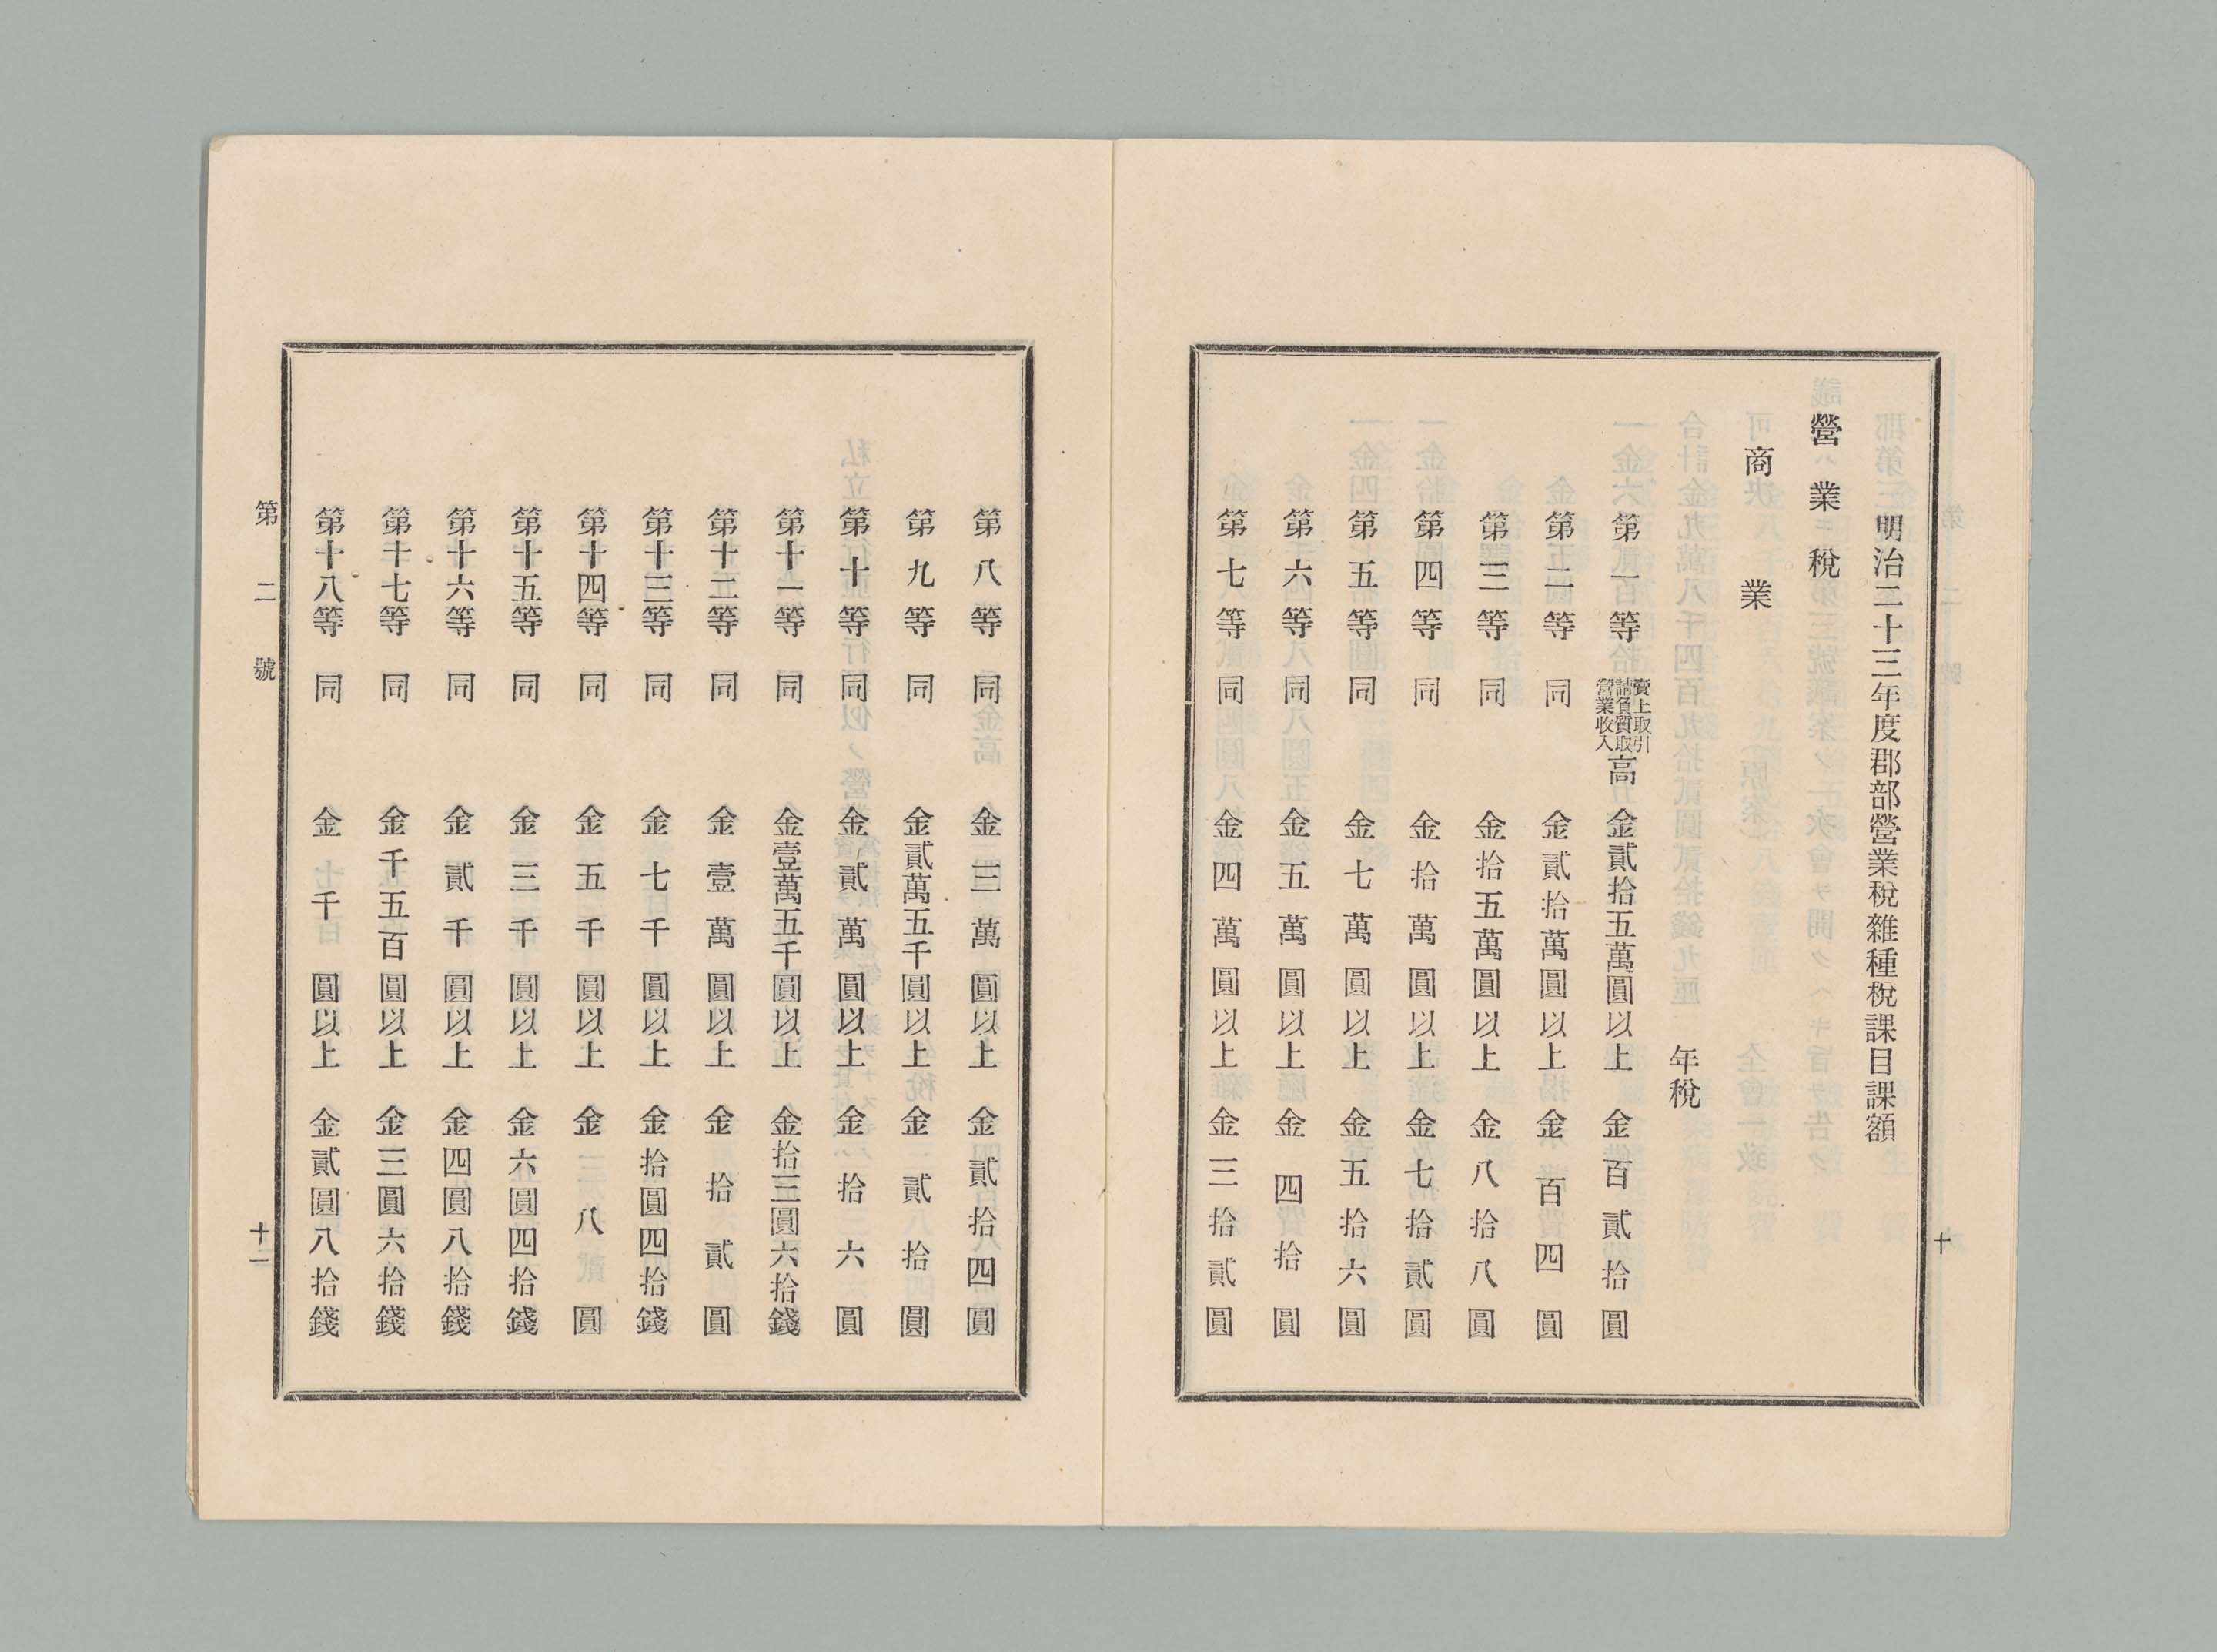 明治二十三年度郡部營業税雜種税課目課額
營業税
商業
年税
第一等 賣上取引請負質取營業收入高 金貳拾五萬圓以上 金百貳拾圓
第二等 同 金貳拾萬圓以上 金百四圓
第三等 同 金拾五萬圓以上 金八拾八圓
第四等 同 金拾萬圓以上 金七拾貳圓
第五等 同 金七萬圓以上 金五拾六圓
第六等 同 金五萬圓以上 金四拾圓
第七等 同 金四萬圓以上 金三拾貳圓
十
第八等 同 金三萬圓以上 金貳拾四圓
第九等 同 金貳萬五千圓以上 金貳拾圓
第十等 同 金貳萬圓以上 金拾六圓
第十一等 同 金壹萬五千圓以上 金拾三圓六拾錢
第十二等 同 金壹萬圓以上 金拾貳圓
第十三等 同 金七千圓以上 金拾圓四拾錢
第十四等 同 金五千圓以上 金八圓
第十五等 同 金三千圓以上 金六圓四拾錢
第十六等 同 金貳千圓以上 金四圓八拾錢
第十七等 同 金千五百圓以上 金三圓六拾錢
第十八等 同 金千圓以上 金貳圓八拾錢
第二號
十一